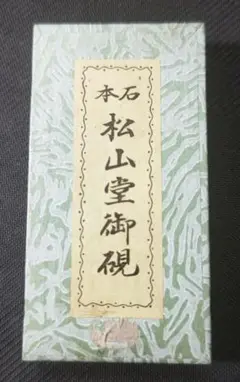 本石
松山堂御硯